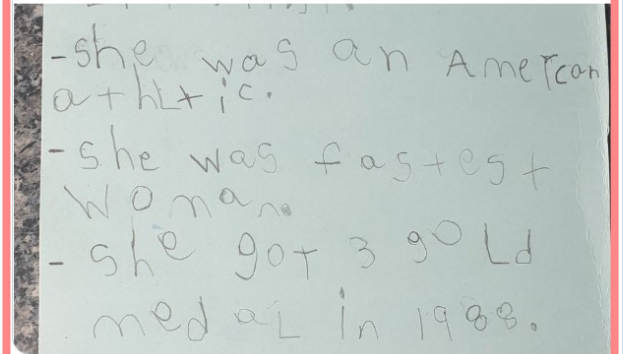 -she was an Amercan
athltic.
-she was fastest
woman.
- she got 3 gold
medal in 1988.